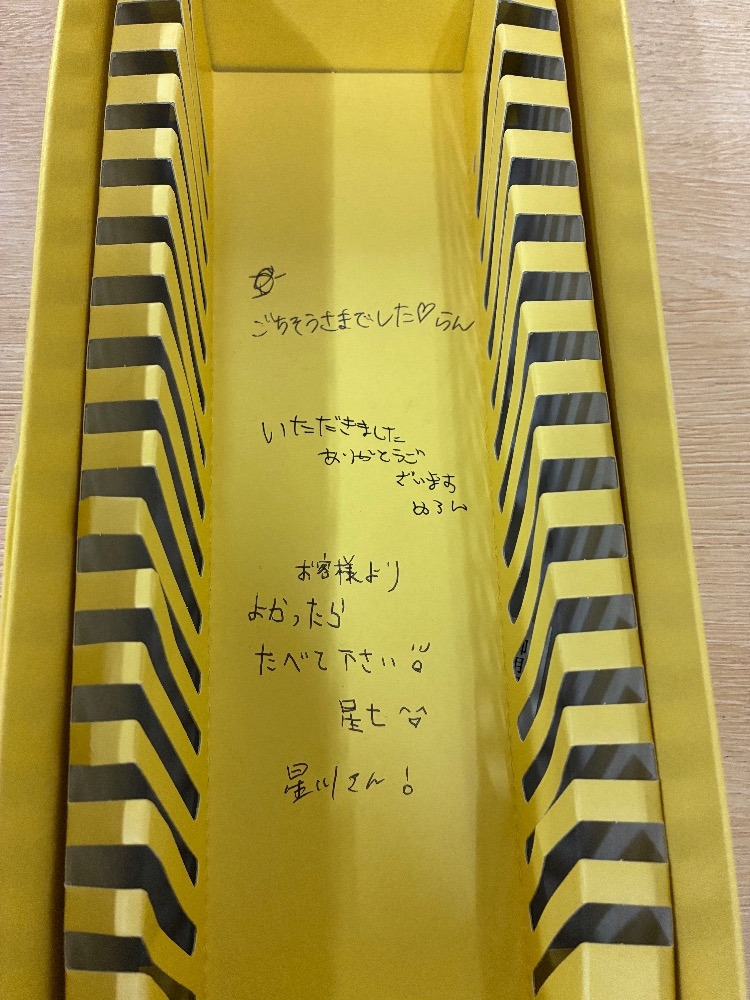 ごちそうさまでした♡らん
いただきました
ありがとうご
ざいます
めろん
お客様より
よかったら
たべて下さい
星七 ^^
星川さん!